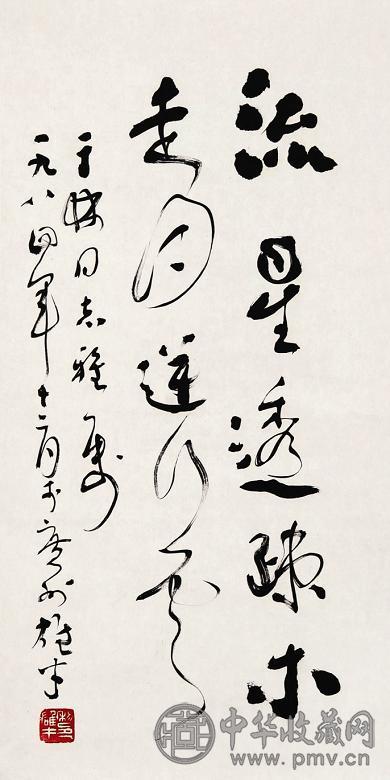 流星透疏木
走月逆行云
同志雅属
一九八四年十二月于广州雄才
中华收藏网
www.pmv.cn